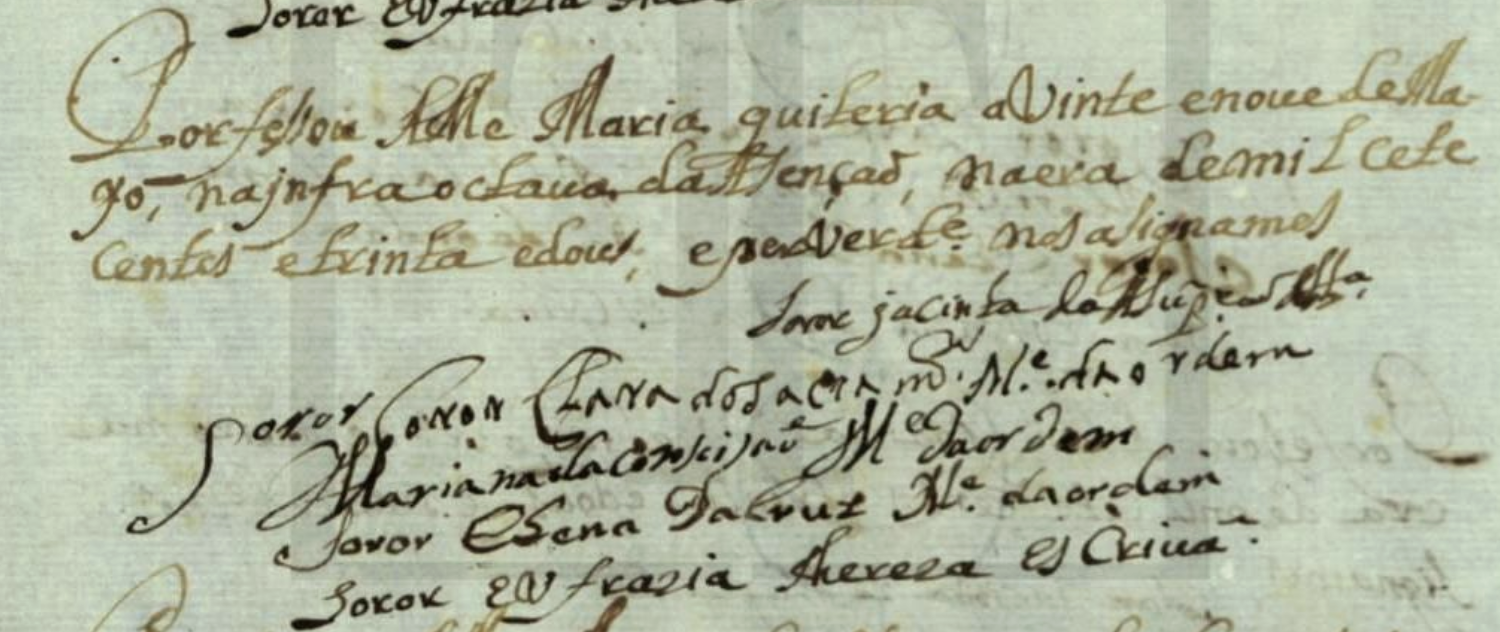 Soror Eufrazia
Porfessou Me Maria quiteria a Vinte enoue de Ma
yo, na jnfra octaua da Assençaõ, na era de mil Cete
Centos e trinta e dous, e por Verd.e nos asignamos
Soror jacinta da
Soror Clara do Sacram.to M.e da ordem
Soror Mariana da Conseisaõ M.e da ordem
Soror Elena Da Cruz M.e da ordem
Soror Eufrazia thereza Escriua.